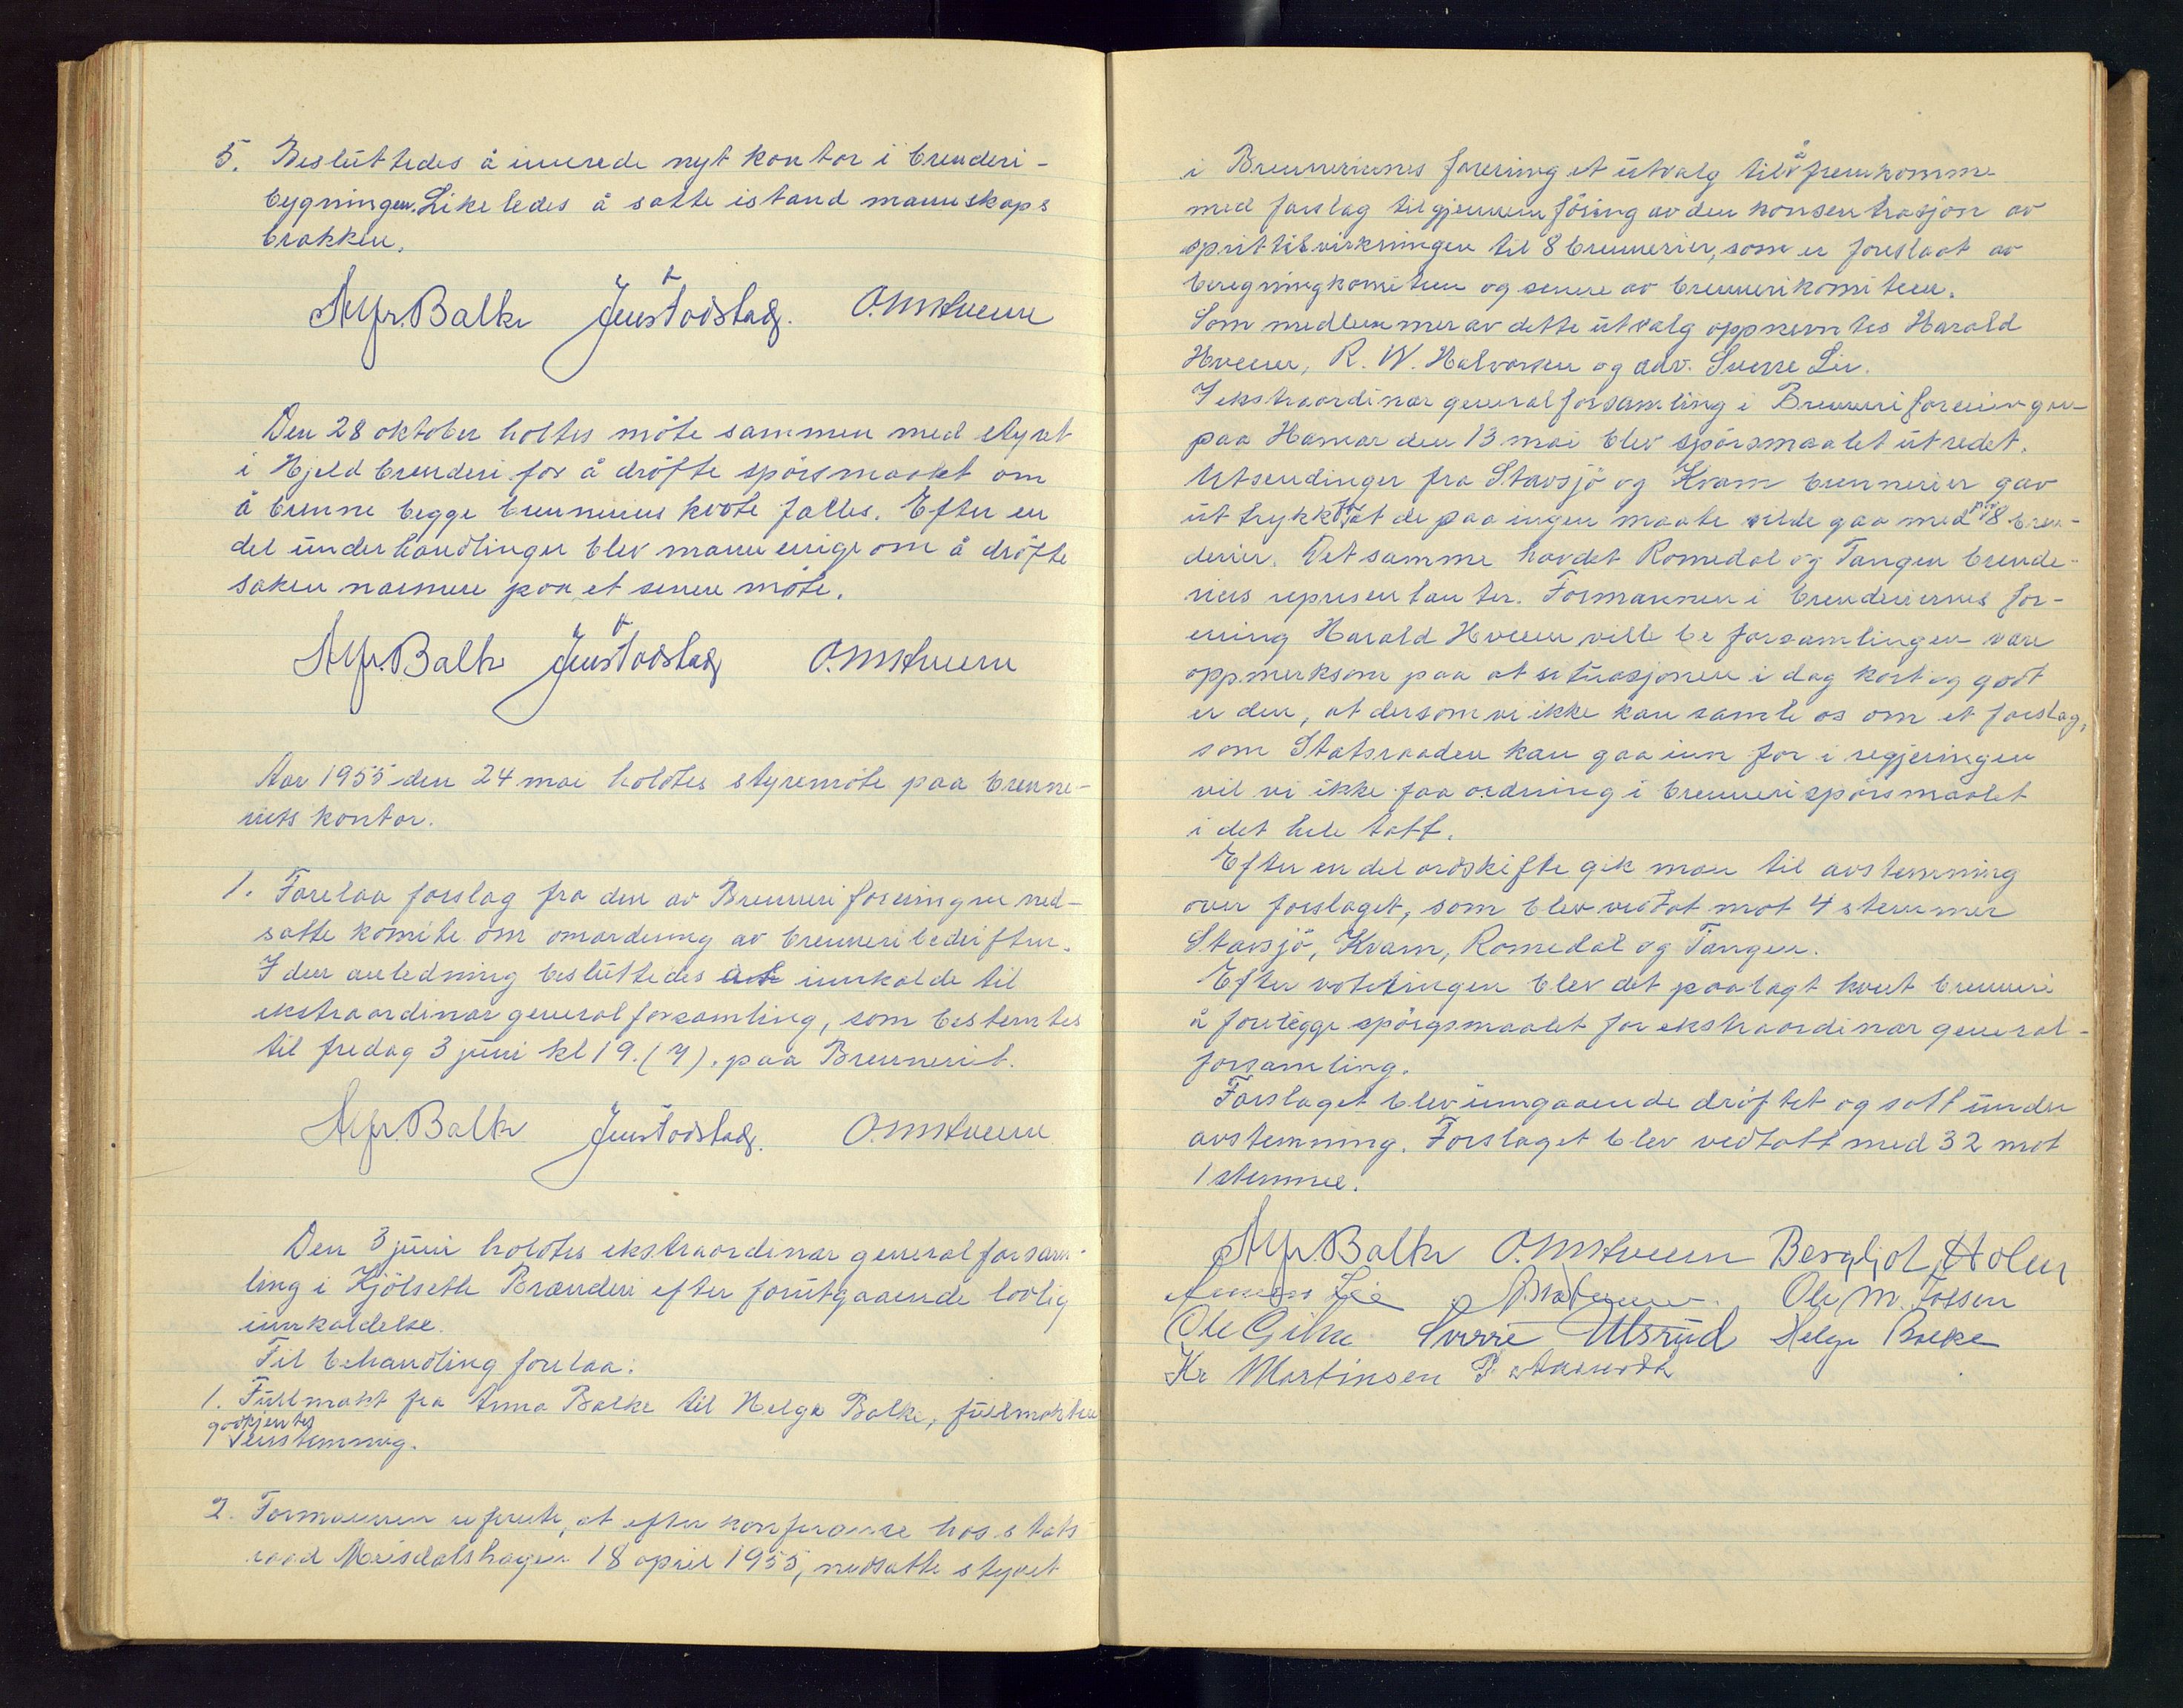 5. Besluttedes å innrede nyt kontor i brenderi-
bygningen. Likeledes å sætte istand mannskaps
brakken.
Alfr. Balke Jens Todstad. O. M. Hveem
Den 28 oktober holtes möte sammen med styret
i Hjeld brenderi for å dröfte spörsmaalet om
å brenne begge brenneriers kvote fælles. Efter en
del underhandlinger blev mann enige om å dröfte
saken nærmere paa et senere möte.
Alfr. Balke Jens Todstad O. M. Hveem
Aar 1955 den 24 mai holdtes styremöte paa brenne-
riets kontor.
1. Forelaa forslag fra den av Brenneriforeningen ned-
satte komite om omordning av brenneribedrifter.
I den anledning besluttedes at innkalde til
ekstraordinær generalforsamling, som bestemtes
til fredag 3 juni kl 19. (7). paa Brenneriet.
Alfr. Balke Jens Todstad. O. M. Hveem
Den 3 juni holdtes ekstraordinær generalforsam-
ling i Kjölseth Brænderi efter forutgaaende lovlig
innkaldelse.
Til behandling forelaa:
1. Fullmakt fra Anna Balke til Helge Balke, fullmakten
godkjentes
enstemmig.
2. Formannen refererte, at efter konferanse hos stats
raad Meisdalshagen 18 april 1955, nedsatte styret
i Brennerienes forening et utvalg til å fremkomme
med forslag til gjennemföring av den konsentrasjon av
sprittilvirkningen til 8 brennerier, som er foreslaat av
beregningkomiteen og senere av brennerikomiteen.
Som medlemmer av dette utvalg oppnevntes Harald
Hveem, R. W. Halvorsen og adv. Sverre Lie.
I ekstraordinær generalforsamling i Brenneriforeningen
paa Hamar den 13 mai blev spörsmaalet utredet.
Utsendinger fra Stavsjö og Kvam brennerier gav
uttrykk for at de paa ingen maate vilde gaa med paa 8 bren-
derier. Det samme hævdet Romedal og Tangen brende-
riers representanter. Formannen i brenderiernes for-
ening Harald Hveem ville be forsamlingen være
oppmerksom paa at situasjonen i dag kort og godt
er den, at dersom vi ikke kan samle os om et forslag,
som Statsraaden kan gaa inn for i regjeringen
vil vi ikke faa ordning i brennerispörsmaalet
i det hele tatt.
Efter en del ordskifte gik man til avstemning
over forslaget, som blev vedtat mot 4 stemmer
Stavsjö, Kvam, Romedal og Tangen.
Efter voteringen blev det paalagt hvert brenneri
å forelegge spörgsmaalet for ekstraordinær general-
forsamling.
Forslaget blev inngaaende dröftet og satt under
avstemning. Forslaget blev vedtatt med 32 mot
1 stemme.
Alfr. Balke O. M. Hveem Bergljot Holen
Lie Ole M. Fossen
Ole Gihle Sverre Ulsrud Helge Balke
Kr Martinsen P.